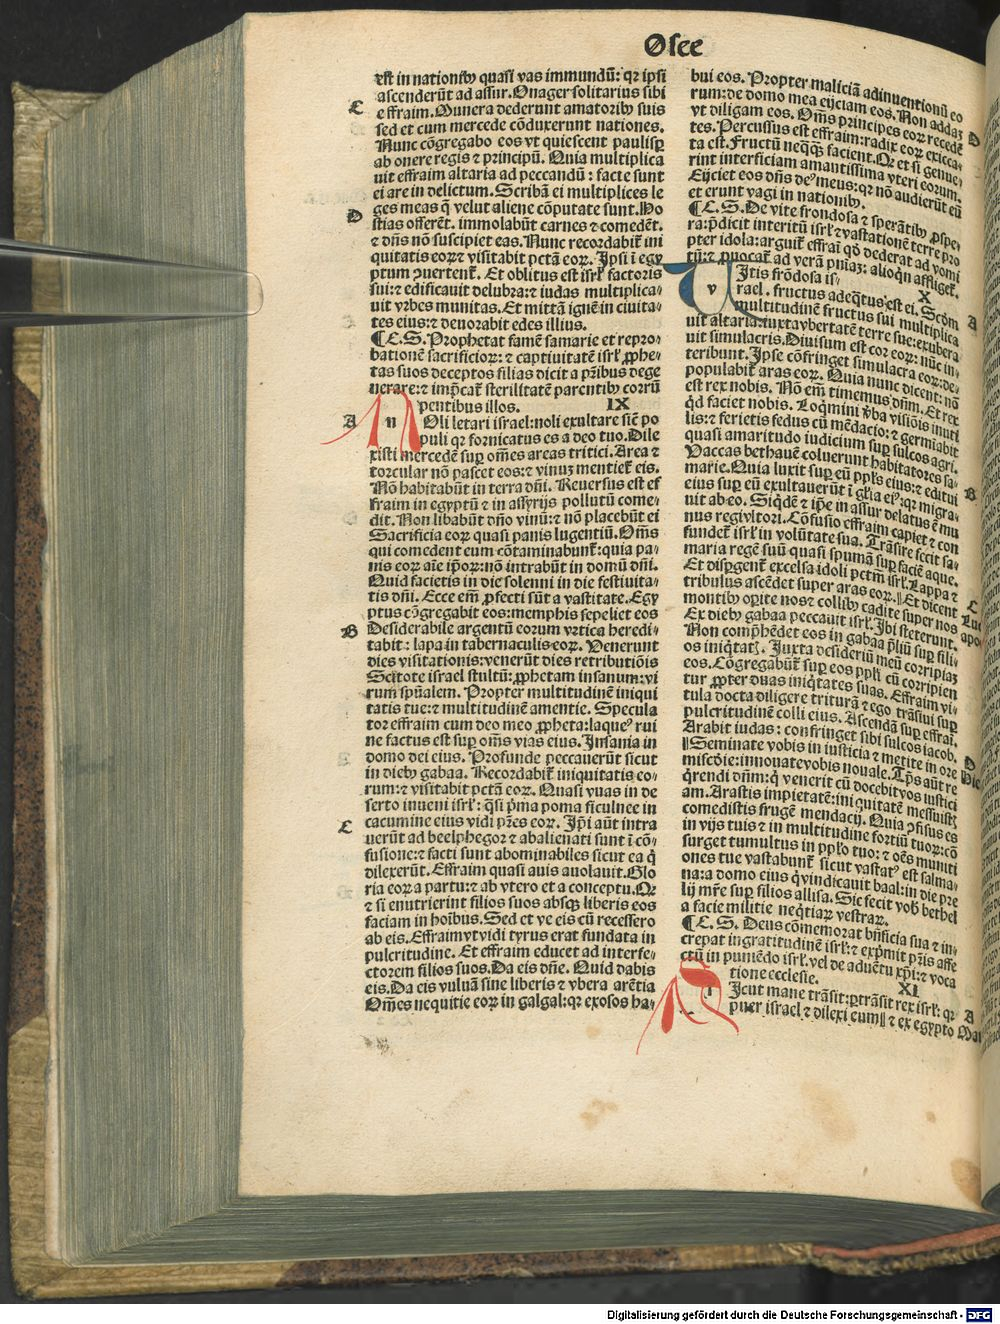 Osee
est in nationibꝫ quasi vas immundū: qꝛ ipsi
ascenderūt ad assur. Onager solitarius sibi
C
effraim. Munera dederunt amatoribꝫ suis
sed et cum mercede cōduxerunt nationes.
Nunc cōgregabo eos vt quiescent paulisꝑ
ab onere regis ⁊ principū. Quia multiplica
uit effraim altaria ad peccandū: facte sunt
ei are in delictum. Scribā ei multiplices le
ges meas q̄ velut aliene cōputate sunt. Ho
D
stias offerēt. immolabūt carnes ⁊ comedēt.
⁊ dn̄s nō suscipiet eas. Nunc recordabit̄ ini
quitatis eoꝝ ⁊ visitabit pctā eoꝝ. Ip̄i ī egy
ptum ꝯuertent̄. Et oblitus est isrl̄ factoris
sui: ⁊ edificauit delubra: ⁊ iudas multiplica-
uit vrbes munitas. Et mittā ignē in ciuita-
tes eius: ⁊ deuorabit edes illius.
¶C.S. Prophetat famē samarie et repro-
bationē sacrificioꝝ: ⁊ captiuitatē isrl̄ ꝓphe-
tas suos deceptos filias dicit a pr̄ibus dege
nerare: ⁊ imp̄cat̄ sterilitatē parentibꝫ corrū
pentibus illos. IX
A
n Oli letari israel: noli exultare sic̄ po
puli qꝛ fornicatus es a deo tuo. Dile
xisti mercedē suꝑ om̄es areas tritici. Area ⁊
torcular nō pascet eos: ⁊ vinuꝫ mentiet̄ eis.
Nō habitabūt in terra dn̄i. Reuersus est ef
fraim in egyptū ⁊ in assyrijs pollutū come-
dit. Non libabūt dn̄o vinū: ⁊ nō placebūt ei
Sacrificia eoꝝ quasi panis lugentiū. Om̄s
qui comedent eum cōtaminabunt̄: quia pa-
nis eoꝝ aīe ip̄oꝝ: nō intrabūt in domū dn̄i.
Quid facietis in die solenni in die festiuita-
tis dn̄i. Ecce em̄ ꝓfecti sūt a vastitate. Egy
ptus cōgregabit eos: memphis sepeliet eos
B
Desiderabile argentū eorum vrtica heredi-
tabit: lapa in tabernaculis eoꝝ. Venerunt
dies visitationis: venerūt dies retributiōis
Scitote israel stultū: ꝓphetam insanum: vi
rum spūalem. Propter multitudinē iniqui
tatis tue: ⁊ multitudinē amentie. Specula
tor effraim cum deo meo ꝓpheta: laqueꝰ rui
ne factus est suꝑ om̄s vias eius. Insania in
domo dei eius. Profunde peccauerūt sicut
in diebꝫ gabaa. Recordabit̄ iniquitatis eo-
rum: ⁊ visitabit pctā eoꝝ. Quasi vuas in de
serto inueni isrl̄: q̄si p̄ma poma ficulnee in
C
cacumine eius vidi pr̄es eoꝝ. Ip̄i aūt intra
uerūt ad beelphegoꝛ ⁊ abalienati sunt ī cō-
fusione: ⁊ facti sunt abominabiles sicut ea q̄
dilexerūt. Effraim quasi auis auolauit. Glo
ria eoꝝ a partu: ⁊ ab vtero et a conceptu. Qꝛ
⁊ si enutrierint filios suos absqꝫ liberis eos
faciam in hoībus. Sed et ve eis cū recessero
ab eis. Effraim vt vidi tyrus erat fundata in
pulcritudine. Et effraim educet ad interfe-
ctorem filios suos. Da eis dn̄e. Quid dabis
eis. Da eis vuluā sine liberis ⁊ vbera arētia
Om̄es nequitie eoꝝ in galgal: qꝛ exosos ha-
bui eos. Propter maliciā adinuentionū eo
rum: de domo mea eijciam eos. Non addaꝫ
D
vt diligam eos. Om̄s principes eoꝝ recedē
tes. Percussus est effraim: radix eoꝝ exicca-
ta est. Fructū neqꝫqꝫ facient. Qꝛ et si genue-
rint interficiam amantissima vteri eorum.
Eijciet eos dn̄s deꝰ meus: qꝛ nō audierūt eū
et erunt vagi in nationibꝫ.
¶C.S. De vite frondosa ⁊ sperātibꝫ ꝓspe-
ra: p̄dicit interitū isrl̄ ⁊ vastationē terre pro
pter idola: arguit̄ effraī qd̄ dederat ad vomi
tū: ⁊ ꝓuocat̄ ad verā pn̄iaꝫ: alioqn̄ affliget̄.
v Itis frōdosa is-
X
rael. fructus adeq̄tus est ei. Scd̄m
A
multitudinē fructus sui multiplica
uit altaria: iuxta vbertatē terre sue: exubera
uit simulacris. Diuisum est cor eoꝝ: nūc in-
teribunt. Ipse cōfringet simulacra eoꝝ: de-
populabit̄ aras eoꝝ. Quia nunc dicent: nō
est rex nobis. Nō em̄ timemus dn̄m. Et rex
qd̄ faciet nobis. Loq̄mini v̄ba visiōis inuti
lis: ⁊ ferietis fedus cū mēdacio: ⁊ germiabit
quasi amaritudo iudicium suꝑ sulcos agri.
Vaccas bethauē coluerunt habitatores sa-
marie. Quia luxit suꝑ eū ppl̄s eius: ⁊ editui
B
eius suꝑ eū exultauerūt ī gl̄ia eiꝰ: qꝛ migra-
uit ab eo. Siqd̄ē ⁊ ip̄e in assur delatus ē mu
nus regi vltori. Cōfusio effraim capiet ⁊ con
fundet̄ isrl̄ in volūtate sua. Trāsire fecit sa-
maria regē suū quasi spumā suꝑ faciē aque.
Et disꝑgent̄ excelsa idoli pctm̄ isrl̄. Lappa ⁊
tribulus ascēdet super aras eoꝝ. ‖Et dicent
montibꝫ oꝑite nos ⁊ collibꝫ cadite super nos
C
Luc
Ex diebꝫ gabaa peccauit isrl̄. Ibi steterunt.
apo
Non comp̄hēdet eos in gabaa p̄liū suꝑ fili-
os iniqtat̄. Iuxta desideriū meū corripiaꝫ
eos. Cōgregabūt̄ suꝑ eos ppl̄i cū corripien
tur ꝓpter duas iniq̄tates suas. Effraim vi-
tula docta diligere triturā ⁊ ego trāsiui suꝑ
pulcritudinē colli eius. Ascendā suꝑ effraī.
Arabit iudas: confringet sibi sulcos iacob.
‖Seminate vobis in iusticia ⁊ metite in ore
D
miscd̄ie: innouate vobis nouale. Tp̄s aūt re
q̄rendi dn̄m: q̄ venerit cū docebit vos iustici
am. Arastis impietatē: iniquitatē messuistꝭ
comedistis frugē mendacij. Quia ꝯfisus es
in vijs tuis ⁊ in multitudine fortiū tuoꝝ: cō
surget tumultus in ppl̄o tuo: ⁊ oēs muniti
ones tue vastabunt̄ sicut vastatꝰ est salma-
na: a domo eius q̄ vindicauit baal: in die pre
lij mr̄e suꝑ filios allisa. Sic fecit vob̄ bethel
a facie militie neq̄tiaꝝ vestraꝝ.
¶C.S. Deus cōmemorat bn̄ficia sua ⁊ in-
crepat ingratitudinē isrl̄: ⁊ exp̄mit pr̄is affe
ctū in puniēdo isrl̄. vel de aduētu xp̄i: ⁊ voca
tione ecclesie. XI
Icut mane trāsit: ꝑtrāsit rex isrl̄: qꝛ
A
puer israel ⁊ dilexi eum‖ ⁊ ex egypto
Mat
Digitalisierung gefördert durch die Deutsche Forschungsgemeinschaft - DFG